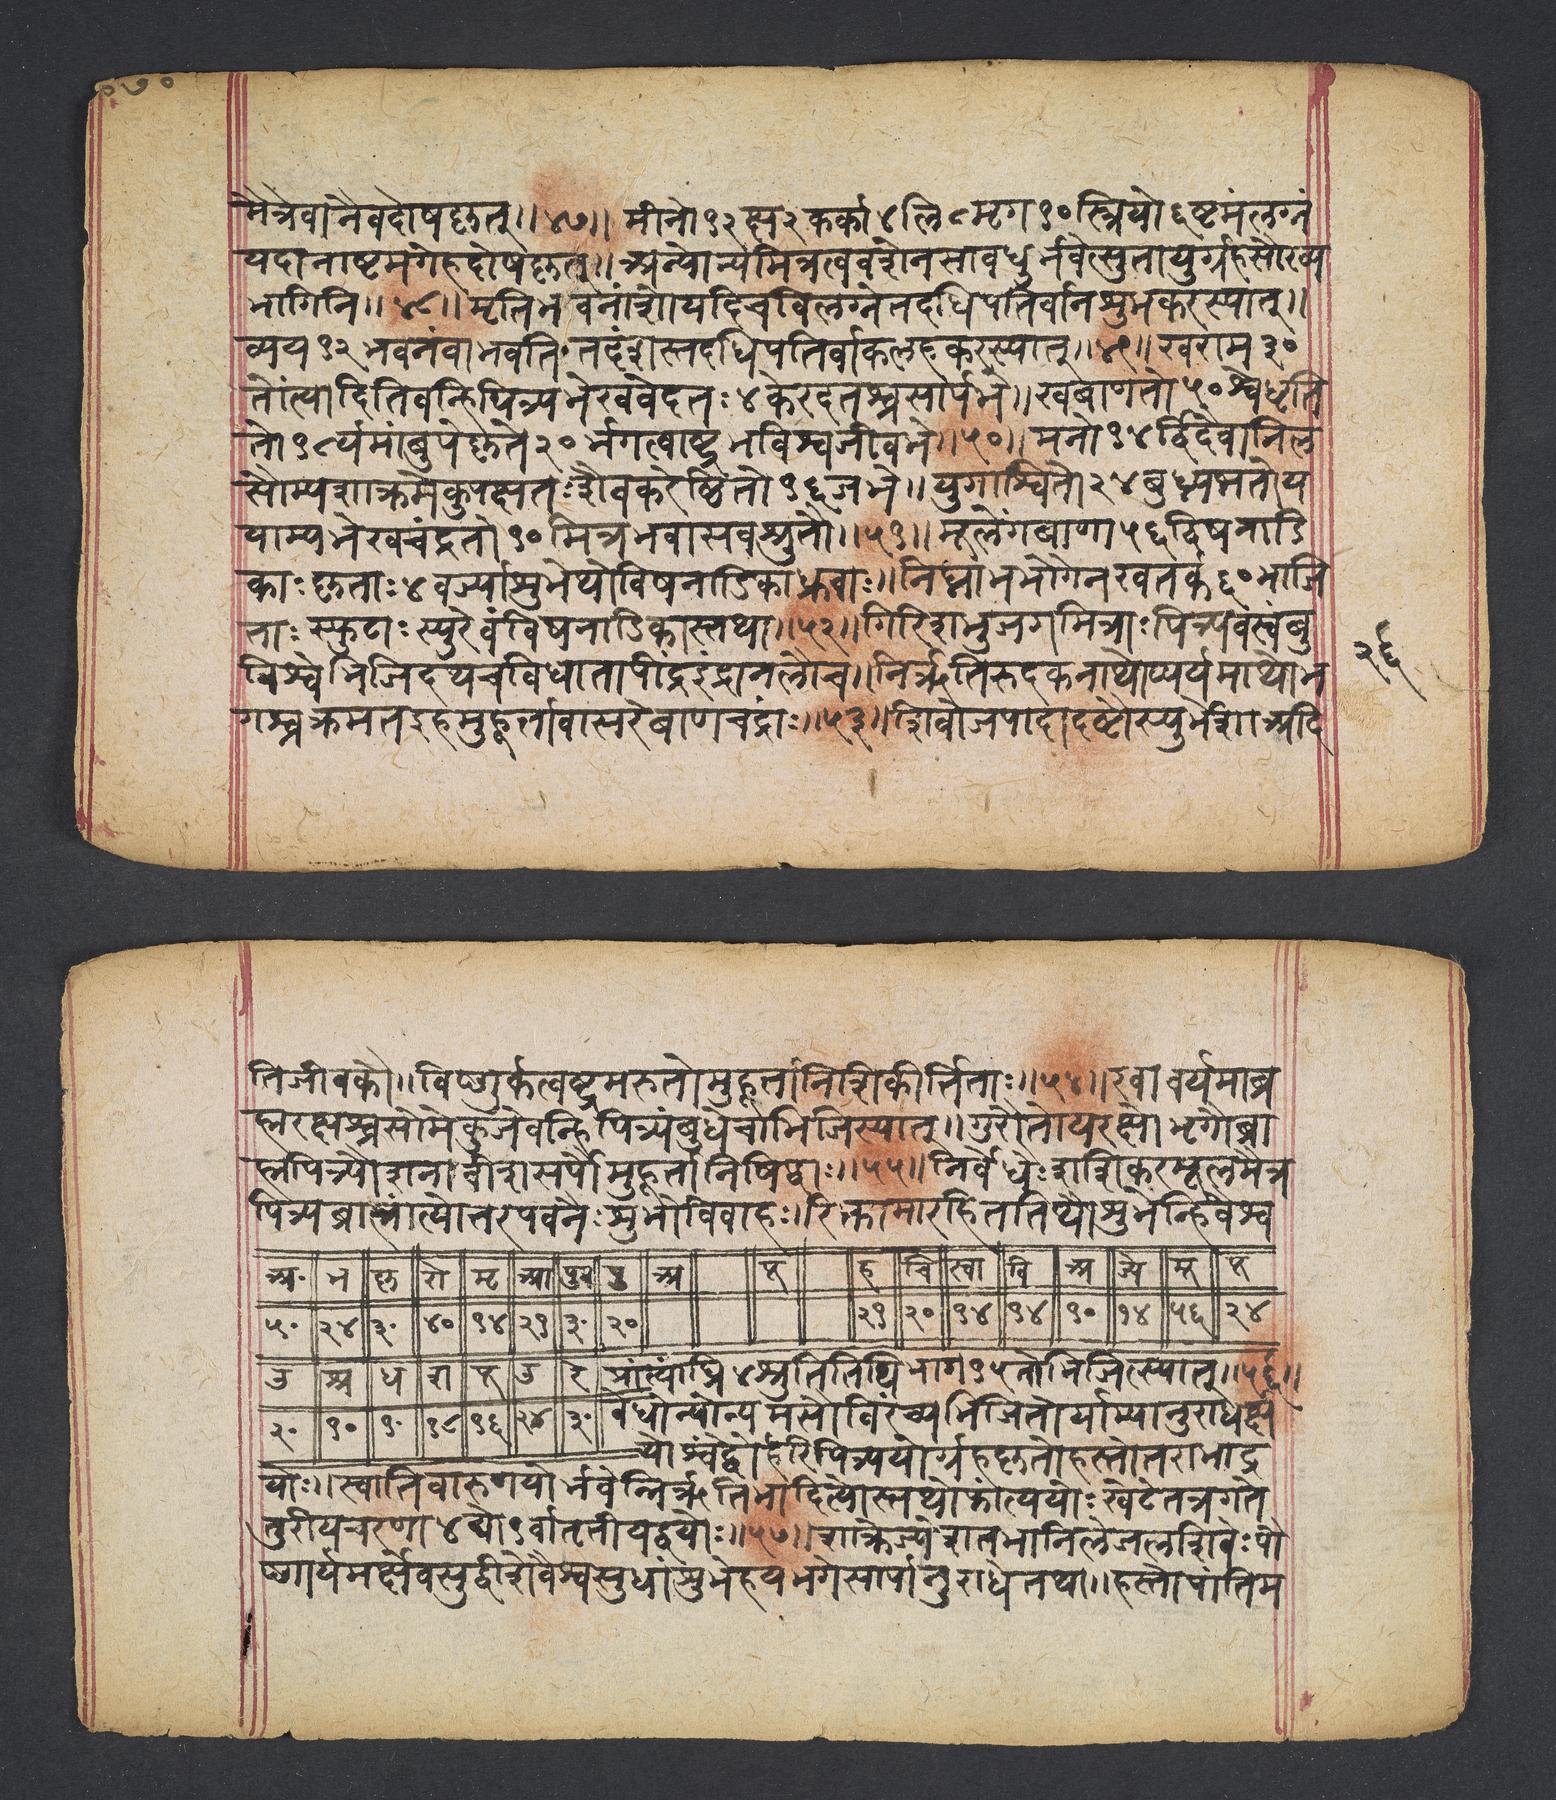 १७०
मैत्रैवानैवदोषकृत्॥४७॥मीनो१२क्ष२कर्का४लि८मृग१०स्त्रियो६ष्टमंलग्नं
यदानाष्टमगेहदोषकृत्॥अन्योन्यमित्रत्ववशेनसावधुर्भवेत्सुतायुर्ग्रहसौख्य
भागिनि॥४८॥मृतिभवनांशोयदिचविलग्नेतदधिपतिर्वानशुभकरस्यात्॥
व्यय१२भवनंवाभवतितदंशस्तदधिपतिर्वाकलहकरस्यात्॥४९॥खराम३०
तोंत्यादितिवन्हिपित्र्यभेखवेदतः४केरदतश्चसार्पभे॥खबाणतो५०श्वेधृति
तो१८र्यमांबुपेकृते२०र्भगत्वाष्ट्रभविश्वजीवभे॥५०॥मनो१४र्द्विदैवानिल
सौम्यशाक्रभेकुपक्षतःशैवकरेष्टितो१६जभे॥युगाश्वितो२४बुध्न्यभतोय
याम्यभेखचंद्रतो१०मित्रभवासवश्रुतौ॥५१॥मूलेंगबाणा५६द्विषनाडि
काःकृताः४वर्ज्याशुभेथोविषनाडिकाध्रुवाः॥निघ्नाभभोगेनखतर्क६०भाजि
ताःस्फुटाःस्युरेवंविषनाडिकास्तथा॥५२॥गिरिशभुजगमित्राःपित्र्यवस्वंबु
विश्वेभिजिदथचविधातापींद्रइंद्रानलौच॥निर्ऋतिरुदकनाथोप्यर्यमाथोभ
गश्चक्रमतइहमुहूर्तावासरेबाणचंद्राः॥५३॥शिवोजपादादष्टौस्युर्भेशाअदि
२६
तिजीवकौ॥विष्ण्वर्कत्वष्ट्रमरुतोमुहूर्तानिशिकीर्त्तिताः॥५४॥रवावर्यमाब्र
ह्मरक्षश्चसोमेकुजेवन्हिपित्र्यंबुधेचाभिजिस्यात्॥गुरौतोयरक्षौभृगौब्रा
ह्मपित्र्यौशनावीशसार्पौमुहूर्तानिषिद्धाः॥५५॥निर्वेधैःशशिकरमूलमैत्र
पित्र्यब्राह्मांत्योत्तरपवनैःशुभोविवाहः॥रिक्तामारहिततिथौशुभेन्हिवैश्व
अ॰ भ कृ रो मृ आ पुन पु अ ह चि स्वा वि अ ज्ये मू
५॰ २४ ३॰ ४० १४ २१ ३॰ २० २१ २० १४ १४ १० १४ ५६ २४
उ श्र ध श उ रे प्रांत्यांघ्रि४श्रुतितिथिभाग१५तोभिजित्स्यात्॥५६॥
२॰ १० १॰ १८ १६ २४ ३॰ वेधोन्योन्यमसौविरंच्यभिजितोर्याम्यानुराधर्क्ष
योर्विश्वेंद्वोर्हरिपित्र्ययोर्ग्रहकृतोहस्तोत्तराभाद्र
योः॥स्वातिवारुणयोर्भवेन्निर्ऋतिभादित्योस्तथोफांत्ययोःखेटेतत्रगते
तुरीयचरणा४द्यो१र्वातृतीयद्वयोः॥५७॥शाक्रेज्येशतभानिलेजलशिवेःपौ
ष्णार्यमर्क्षेवसुद्वीशेवैश्वसुधांशुभेहयभगेसार्पानुराधेतथा॥हस्तोपांतिम